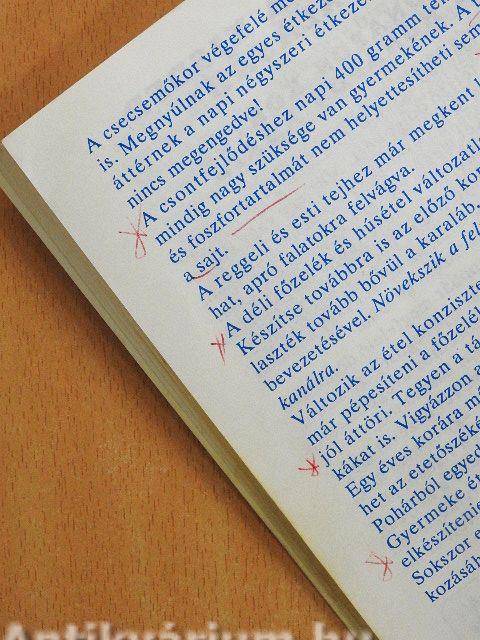 A csecsemőkor végefelé
is. Megnyúlnak az egyes étkezé
áttérnek a napi négyszeri étkezé
nincs megengedve!
A csontfejlődéshez napi 400 gramm tej
mindig nagy szüksége van gyermekének. A
és foszfortartalmát nem helyettesítheti sem
a sajt.
A reggeli és esti tejhez már megkent
hat, apró falatokra felvágva.
A déli főzelék és húsétel változatl
Készítse továbbra is az előző
laszték tovább bővül a karaláb,
bevezetésével. Növekszik a fel
kanálra.
Változik az étel konziszte
már pépesíteni a főzelél
jól áttöri. Tegyen a tá
kákat is. Vigyázzon a
Egy éves korára
het az etetőszéké
Pohárból egyed
Gyermeke
elkészítenie
Sokszor e
kozásáh
Antikvárium.hu